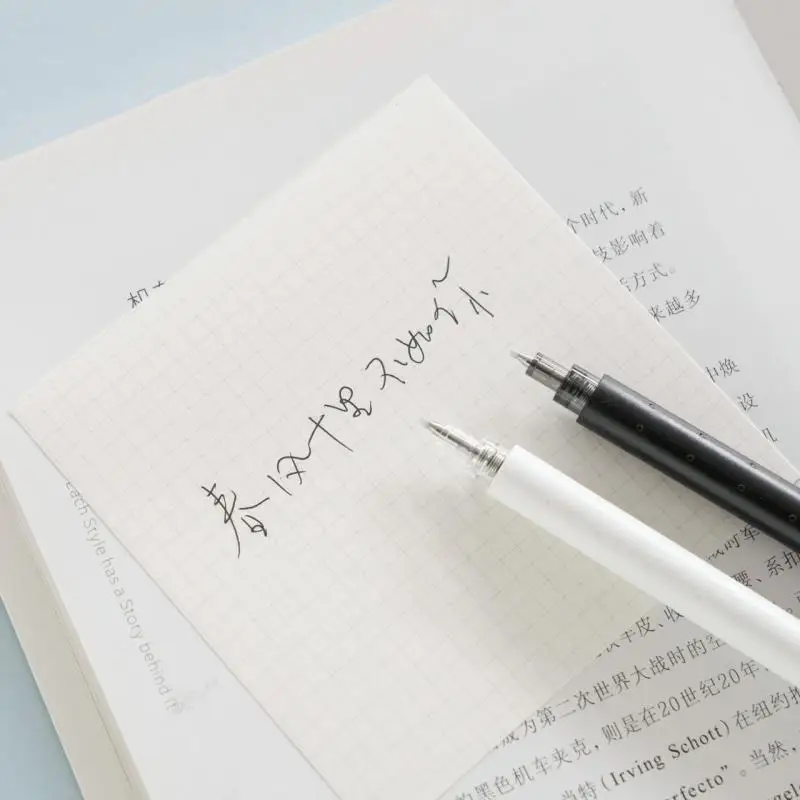 春风十里不如你
个时代，新
技影响着
方式。
来越多
中焕
设
机
Each Style has a Story behind it
腰、系扣
皮、收
成为第二次世界大战时的空
的黑色机车夹克，则是在20世纪20年
特（Irving Schott）在纽约
erfecto”。当然，